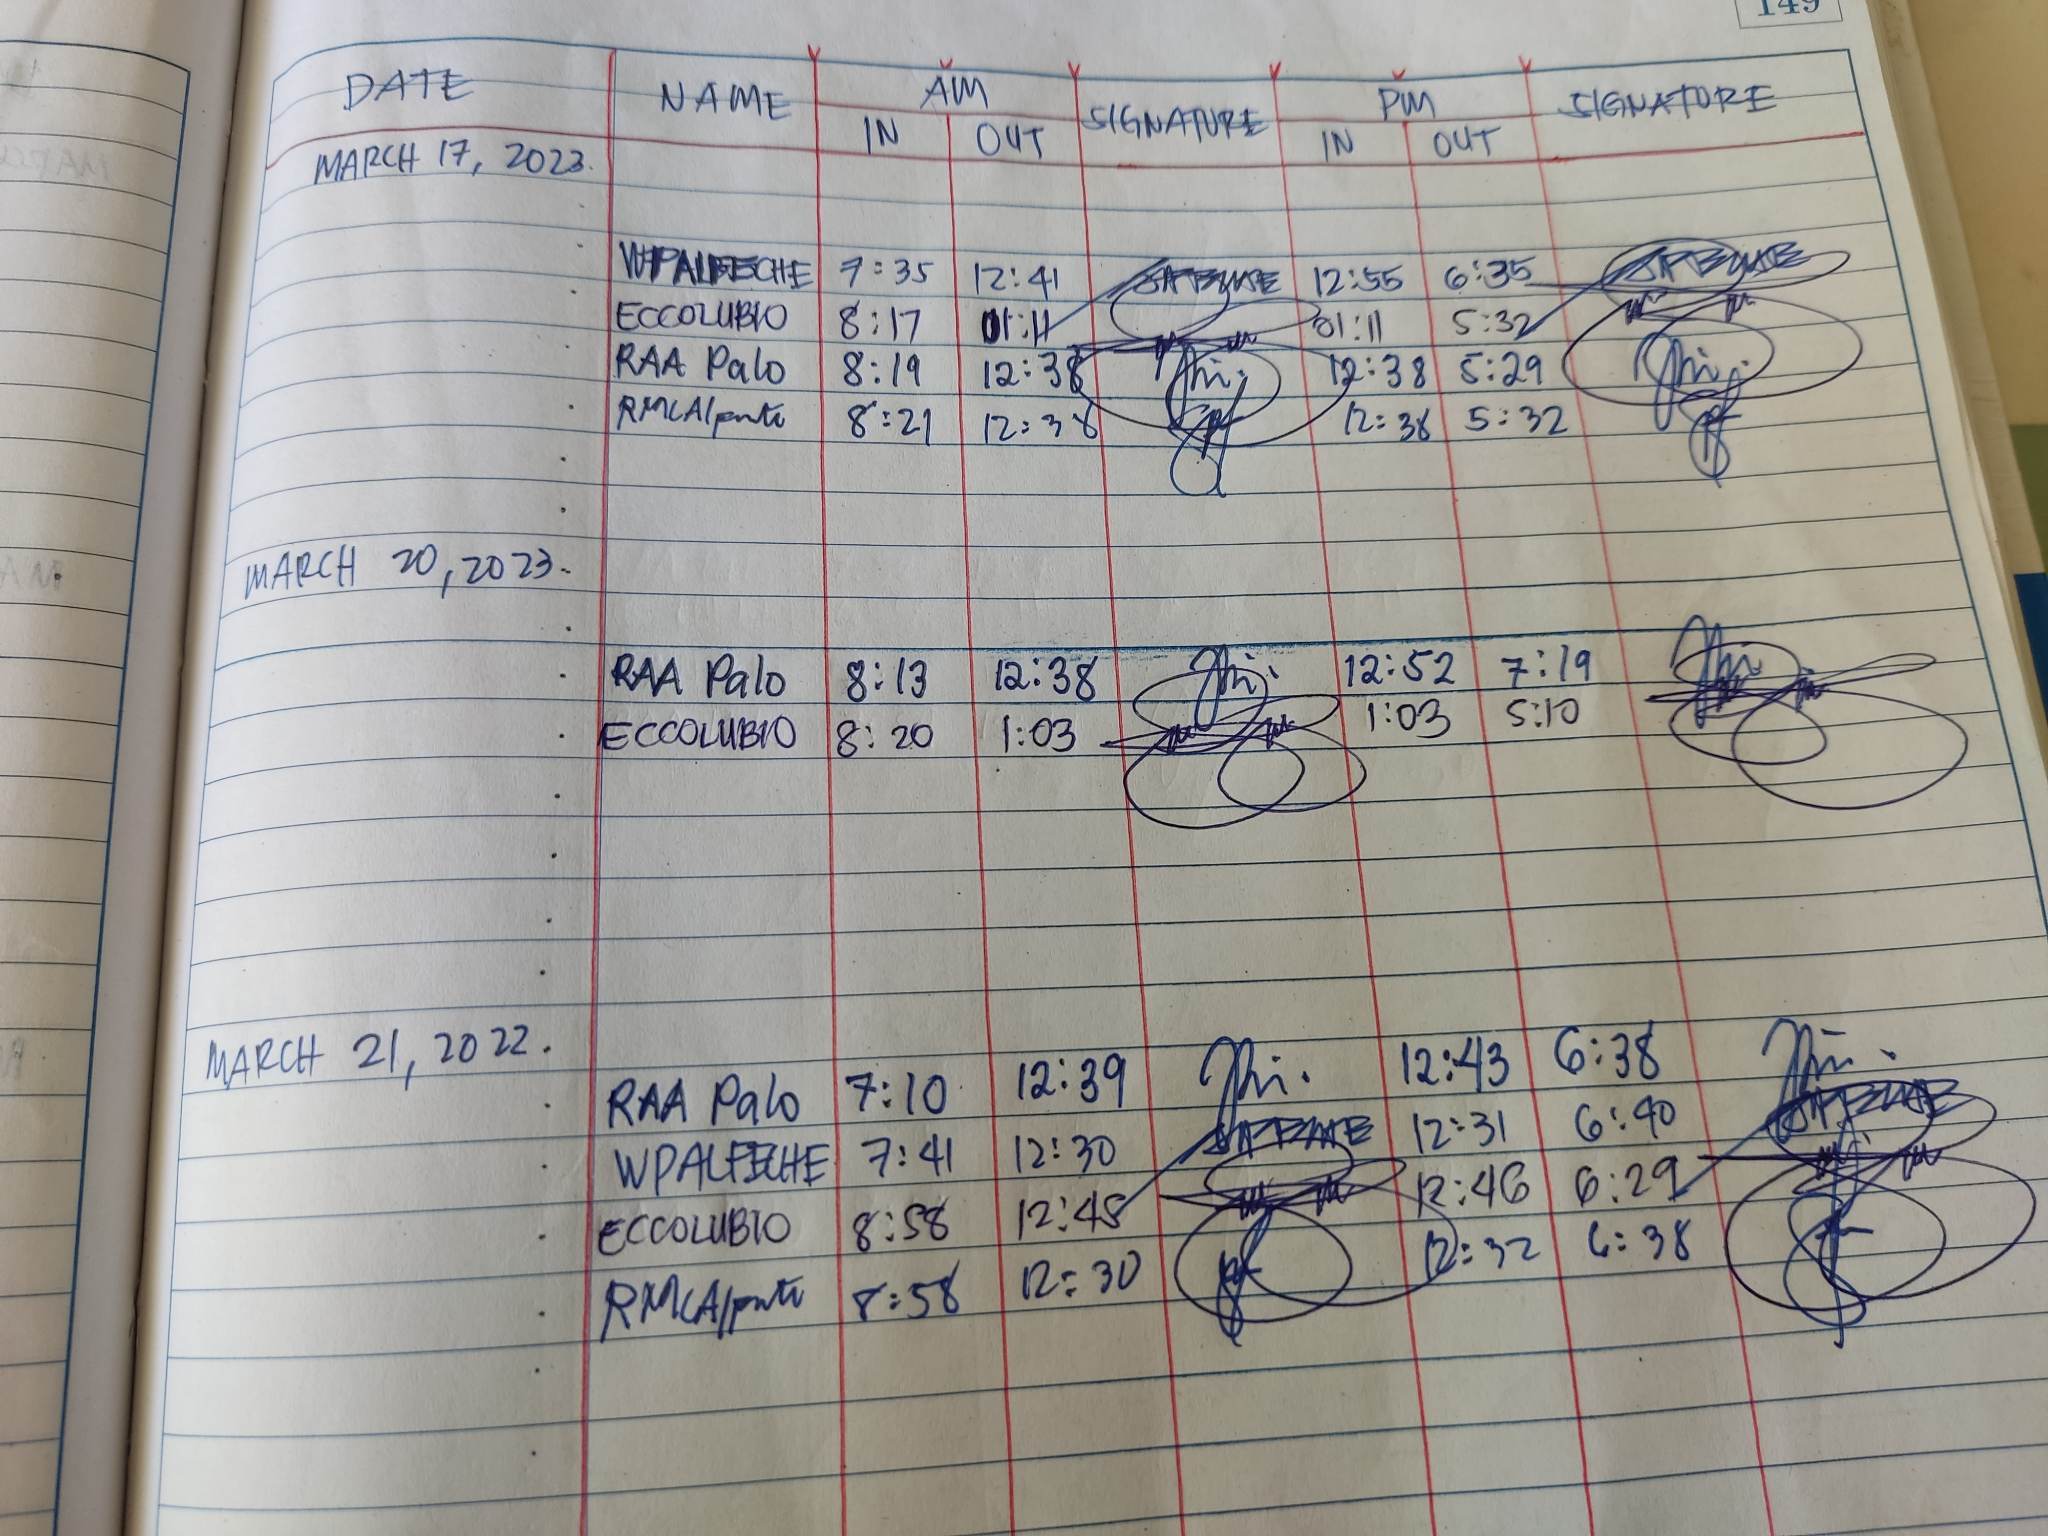 149
DATE NAME AM SIGNATURE PM SIGNATURE
IN OUT IN OUT
MARCH 17, 2023.
WPALFECHE 7:35 12:41 12:55 6:35
ECCOLUBIO 8:17 01:11 01:11 5:32
RAA Palo 8:19 12:38 12:38 5:29
RMCAlponte 8:21 12:38 12:38 5:32
MARCH 20, 2023.
RAA Palo 8:13 12:38 12:52 7:19
ECCOLUBIO 8:20 1:03 1:03 5:10
MARCH 21, 2022.
RAA Palo 7:10 12:39 12:43 6:38
WPALFECHE 7:41 12:30 12:31 6:40
ECCOLUBIO 8:58 12:45 12:46 6:29
RMCAlponte 8:58 12:30 12:32 6:38